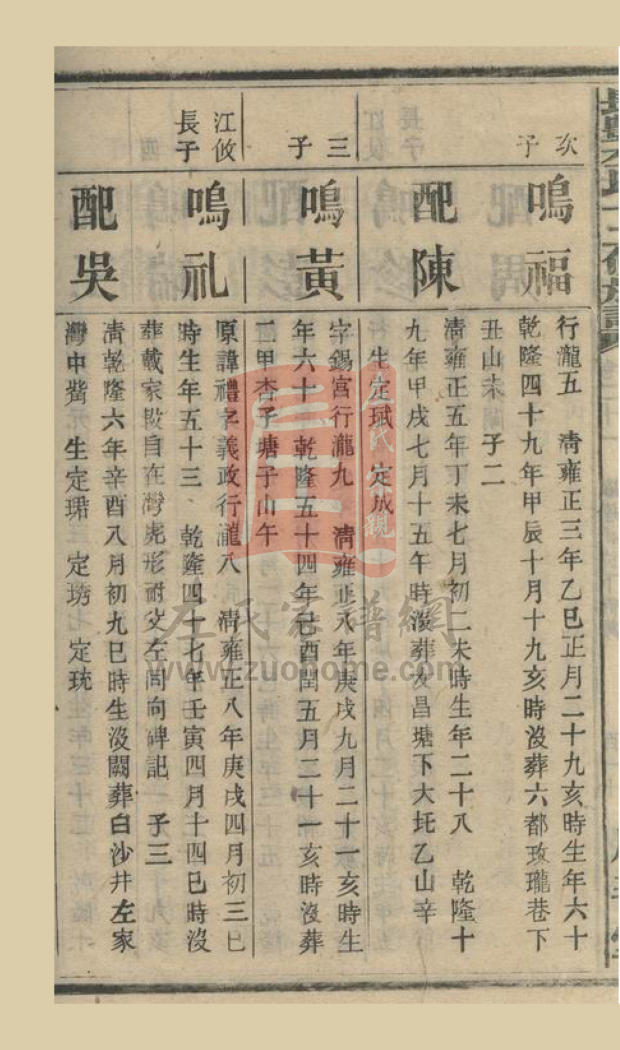 次子
鳴福
行瀧五 清雍正三年乙巳正月二十九亥時生年六十
乾隆四十九年甲辰十月十九亥時沒葬六都玫瓏巷下
丑山未 子二
配陳
清雍正五年丁未七月初二未時生年二十八 乾隆十
九年甲戌七月十五午時沒葬友昌塘下大坵乙山辛
生定珷 定成
三子
鳴黃
字錫宮行瀧九 清雍正八年庚戌九月二十一亥時生
年六十 乾隆五十四年己酉閏五月二十一亥時沒葬
二甲杏子塘子山午
江攸長子
鳴礼
原諱禮字義政行瀧八 清雍正八年庚戌四月初三巳
時生年五十三 乾隆四十七年壬寅四月十四巳時沒
葬戴家塅自在灣虎形祔父左同向碑記 子三
配吳
清乾隆六年辛酉八月初九巳時生沒闕葬白沙井左家
灣中觜 生定珺 定琇 定珫
左氏家譜網
www.zuohome.com